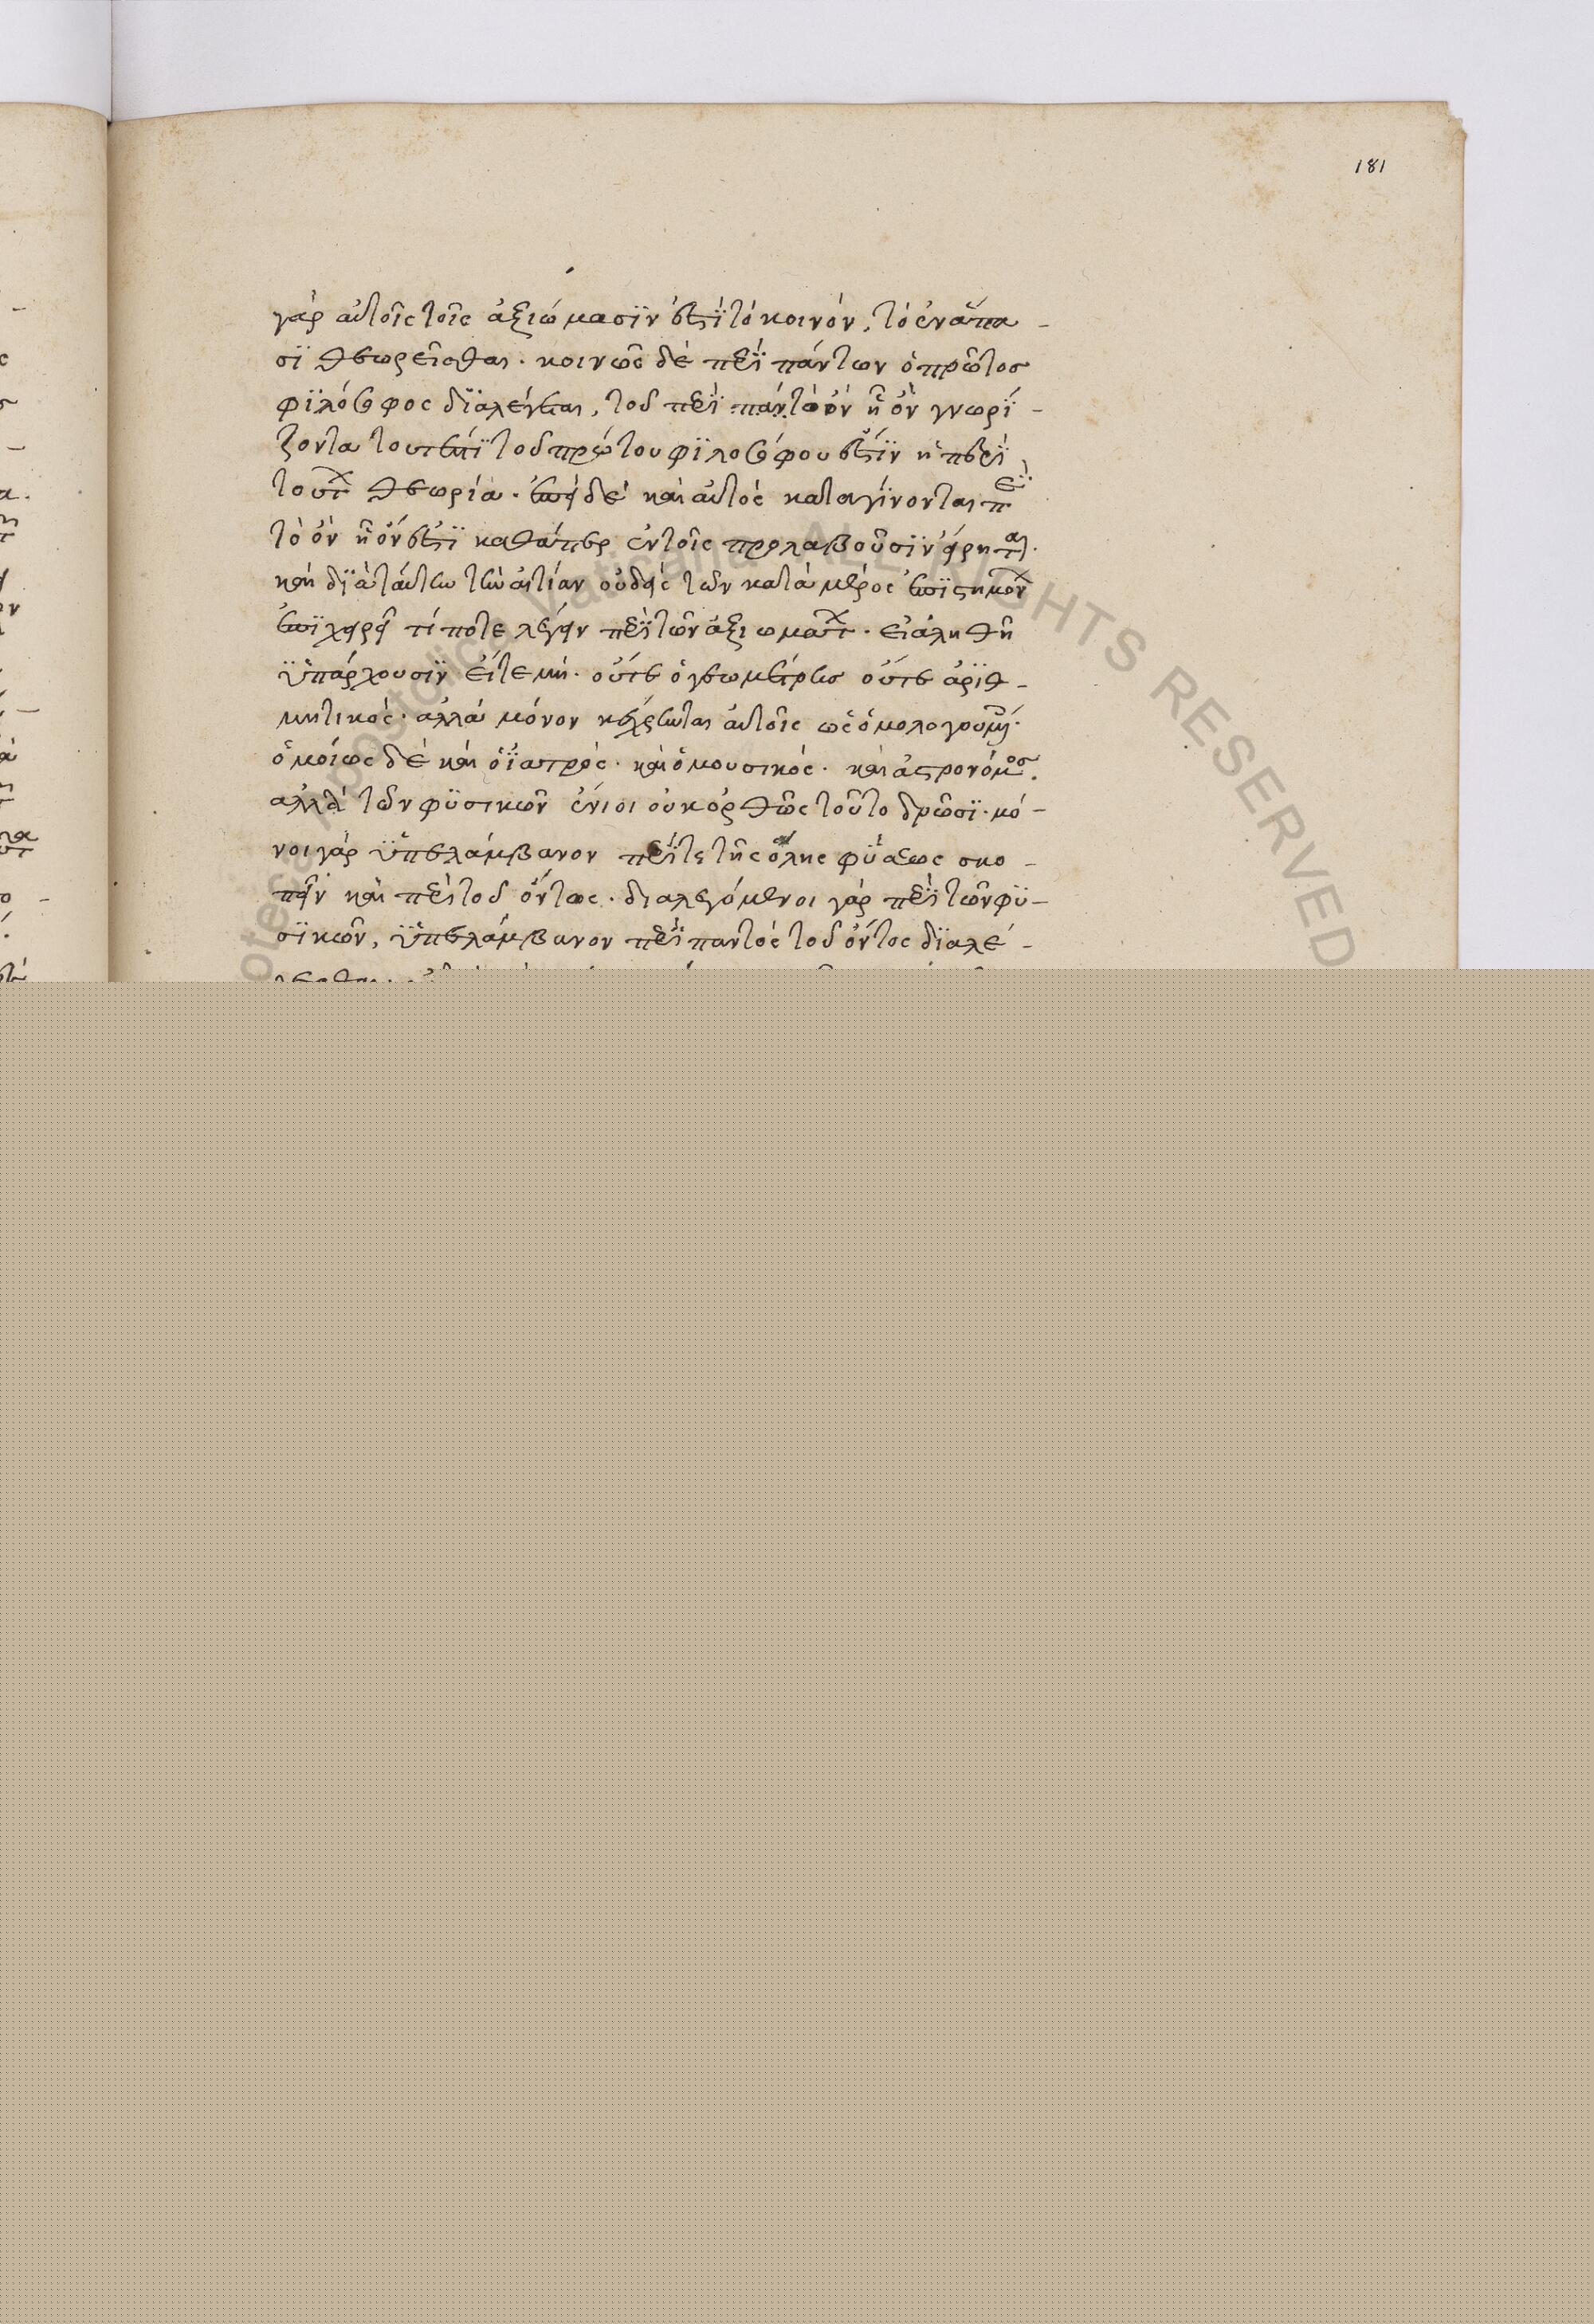 181
γὰρ αὐτοῖς τοῖς ἀξιώμασϊν ἐστϊ τὸ κοινὸν, τὸ ἐν ἅπα-
σϊ θεωρεῖσθαι. κοινῶς δὲ περϊ πάντων ὁ πρῶτος
φϊλόσοφος δϊαλέγεται, τοῦ περϊ πάντα ὂν ἧ ὂν γνωρϊ-
ζοντα τουτέστϊ τοῦ πρώτου φϊλοσόφου ἐστϊν ἡ περϊ
τούτων θεωρία. ἐπεὶ δὲ καὶ αὐτὸς καταγϊνονται περϊ
τὸ ὂν ἧ ὄν ἐστϊ καθάπερ ἐν τοῖς προλαβοῦσϊν εἴρηται.
καὶ δϊὰ ταύτην τὴν αἰτίαν οὐδεὶς τῶν κατὰ μέρος ἐπϊστημόνων
ἐπϊχειρεῖ τί ποτε λέγειν περϊ τῶν ἀξιωμάτων. εἰ ἀληθῆ
ϋπάρχουσϊν εἴτε μὴ. οὔτε ὁ γεωμέτρης οὔτε ἀρϊθ-
μητικὸς. ἀλλὰ μόνον κέχρηται αὐτοῖς ὡς ὁμολογουμένοις.
ὁμοίως δὲ καὶ ὁ ϊατρὸς. καὶ ὁ μουσικὸς. καὶ ἀστρονόμος.
ἀλλὰ τῶν φϋσικῶν ἔνιοι οὐκ ὀρθῶς τοῦτο δρῶσϊ. μό-
νοι γὰρ ϋπελάμβανον περϊ τε τῆς ὅλης φϋσεως σκο-
πεῖν καὶ περϊ τοῦ ὄντος. διαλεγόμενοι γὰρ περϊ τῶν φϋ-
σϊκῶν, ϋπελάμβανον περϊ παντὸς τοῦ ὄντος δϊαλέ-